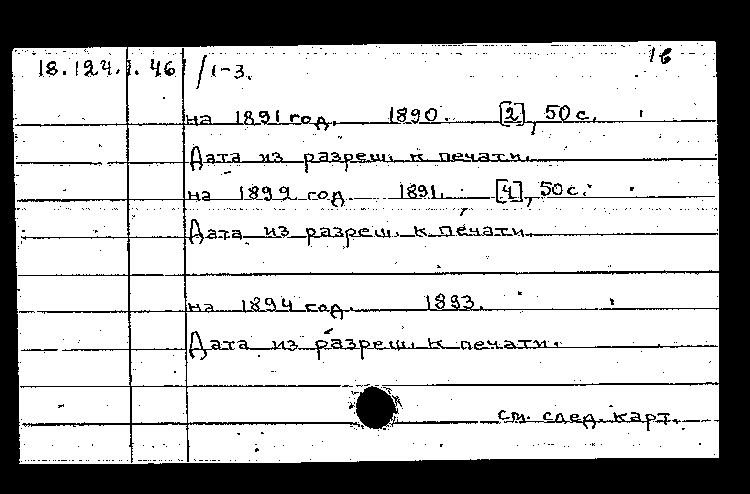 18.124.1.46 /1-3. 1б
на 1891 год. 1890. [2], 50 с.
Дата из разреш. к печати.
на 1892 год. 1891. [4], 50 с.
Дата из разреш. к печати.
на 1894 год. 1893.
Дата из разреш. к печати.
см. след. карт.